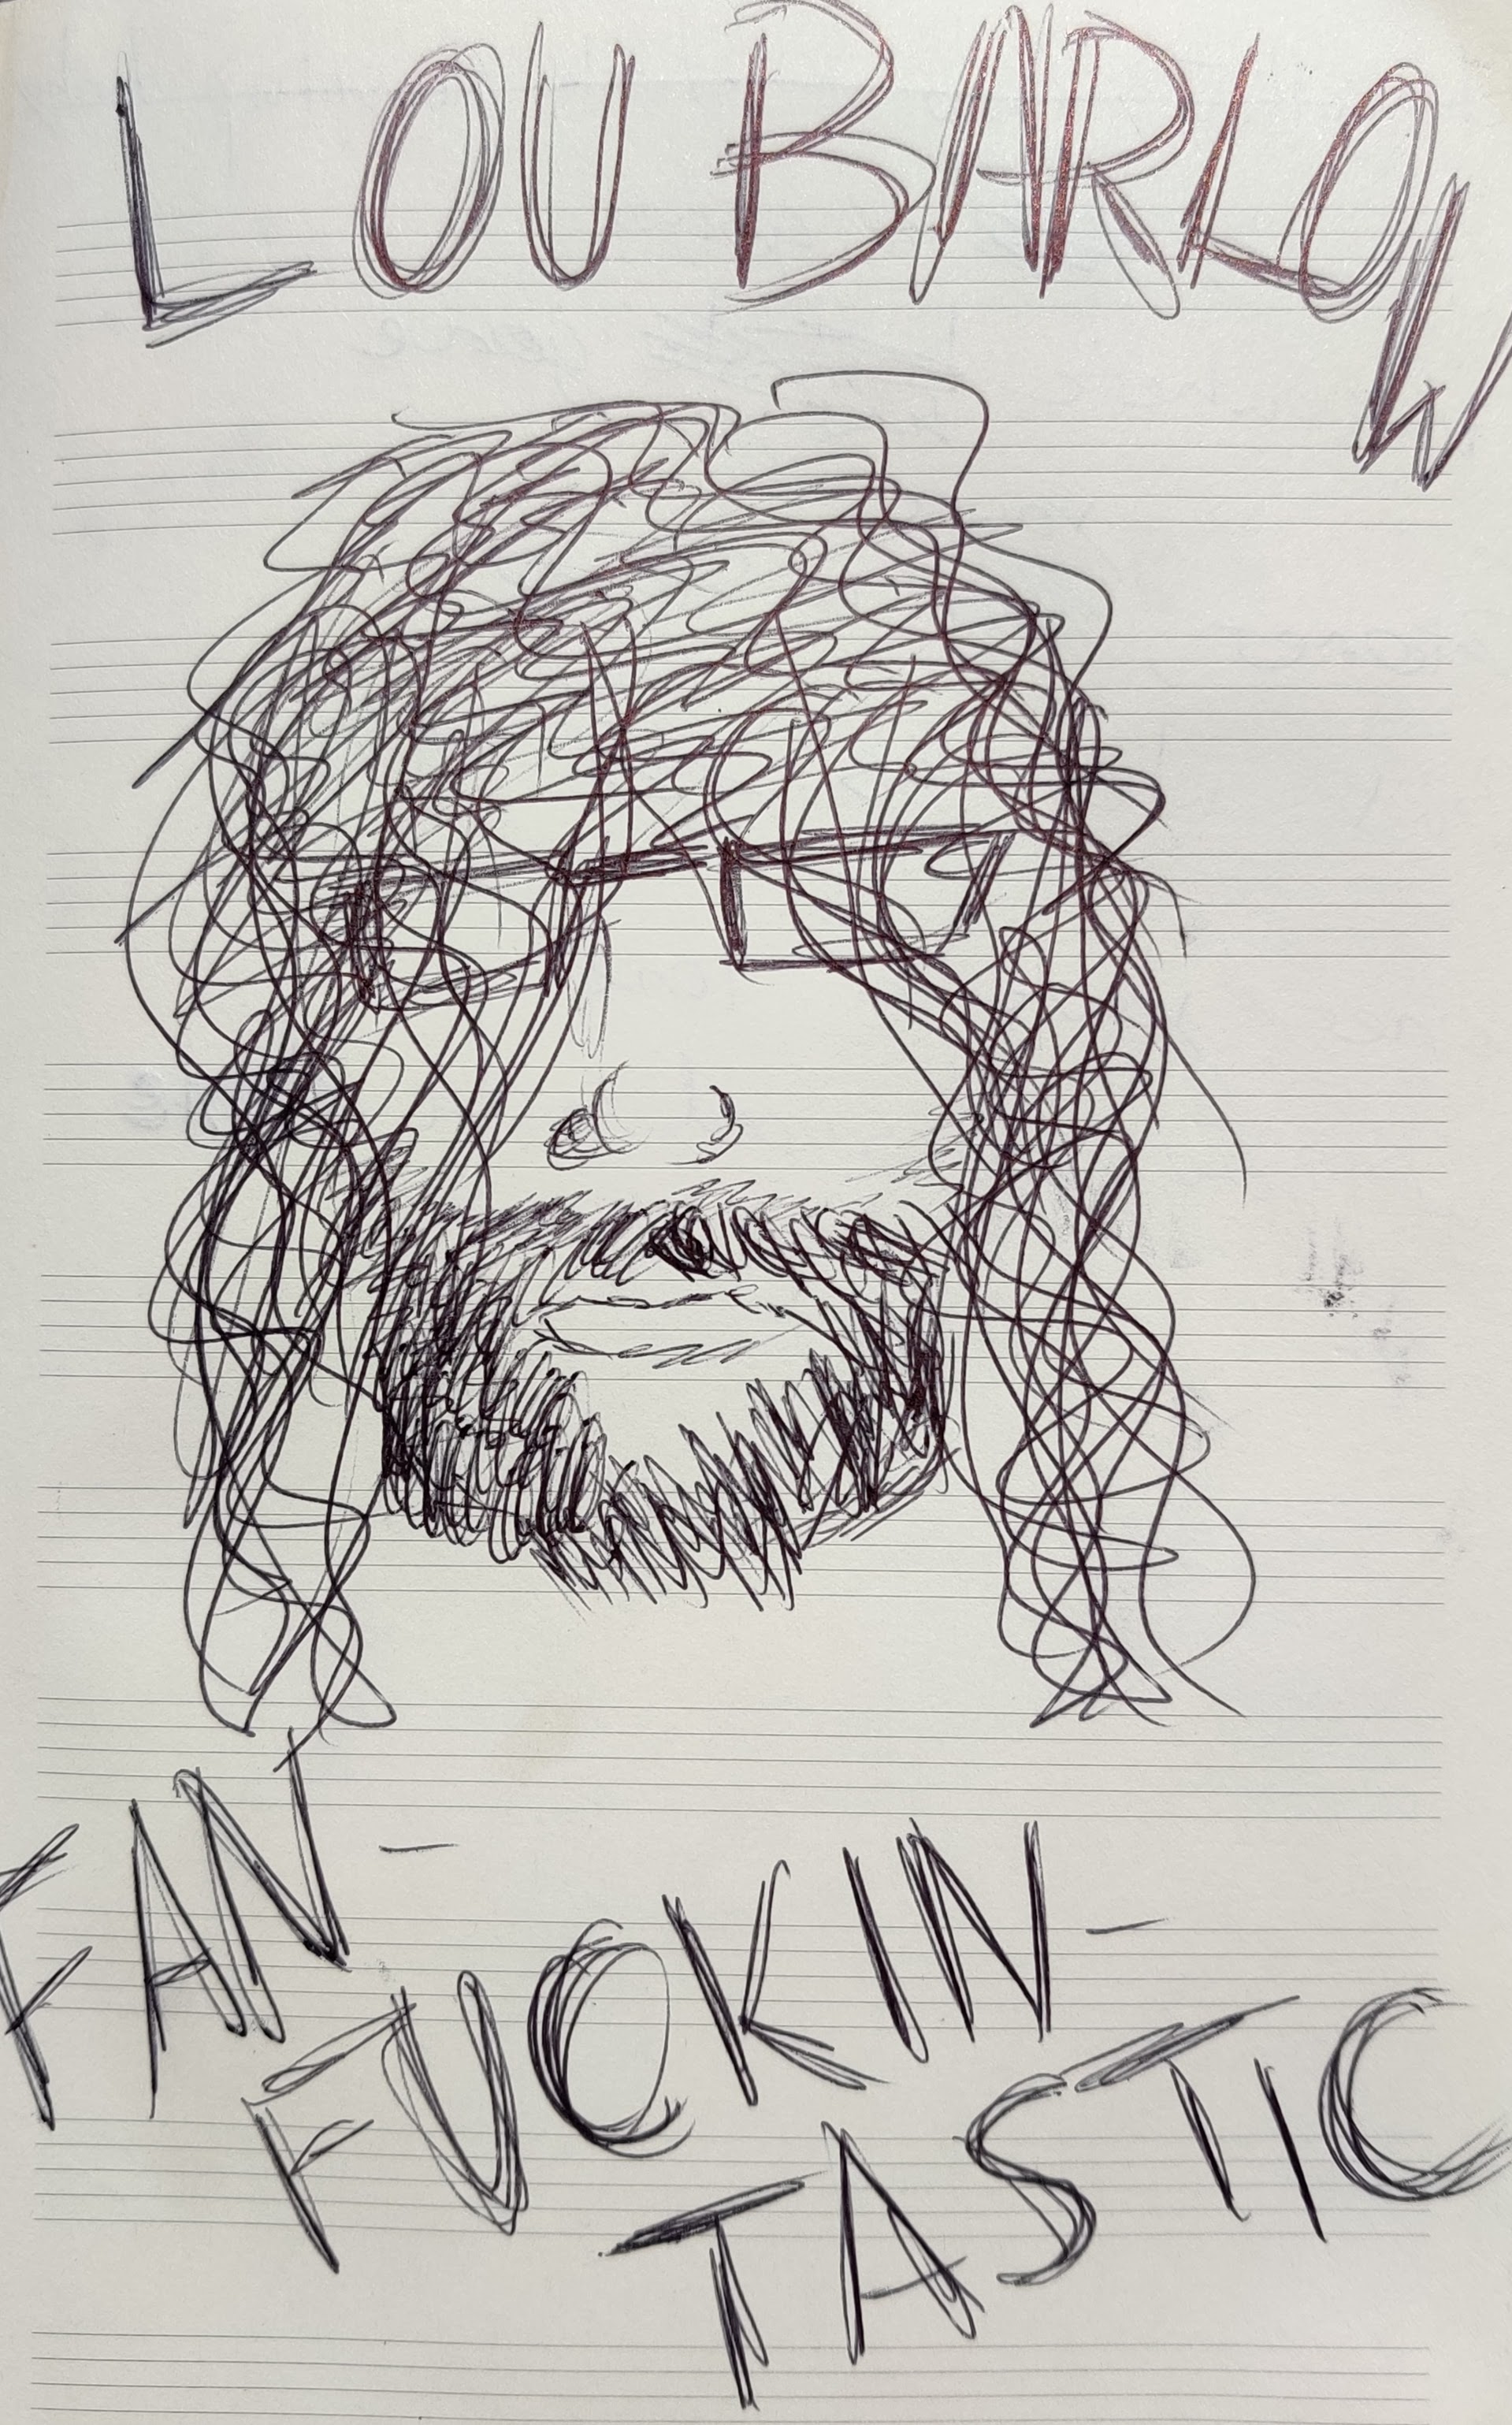 LOU BARLOW
FAN-
FUCKIN-
TASTIC